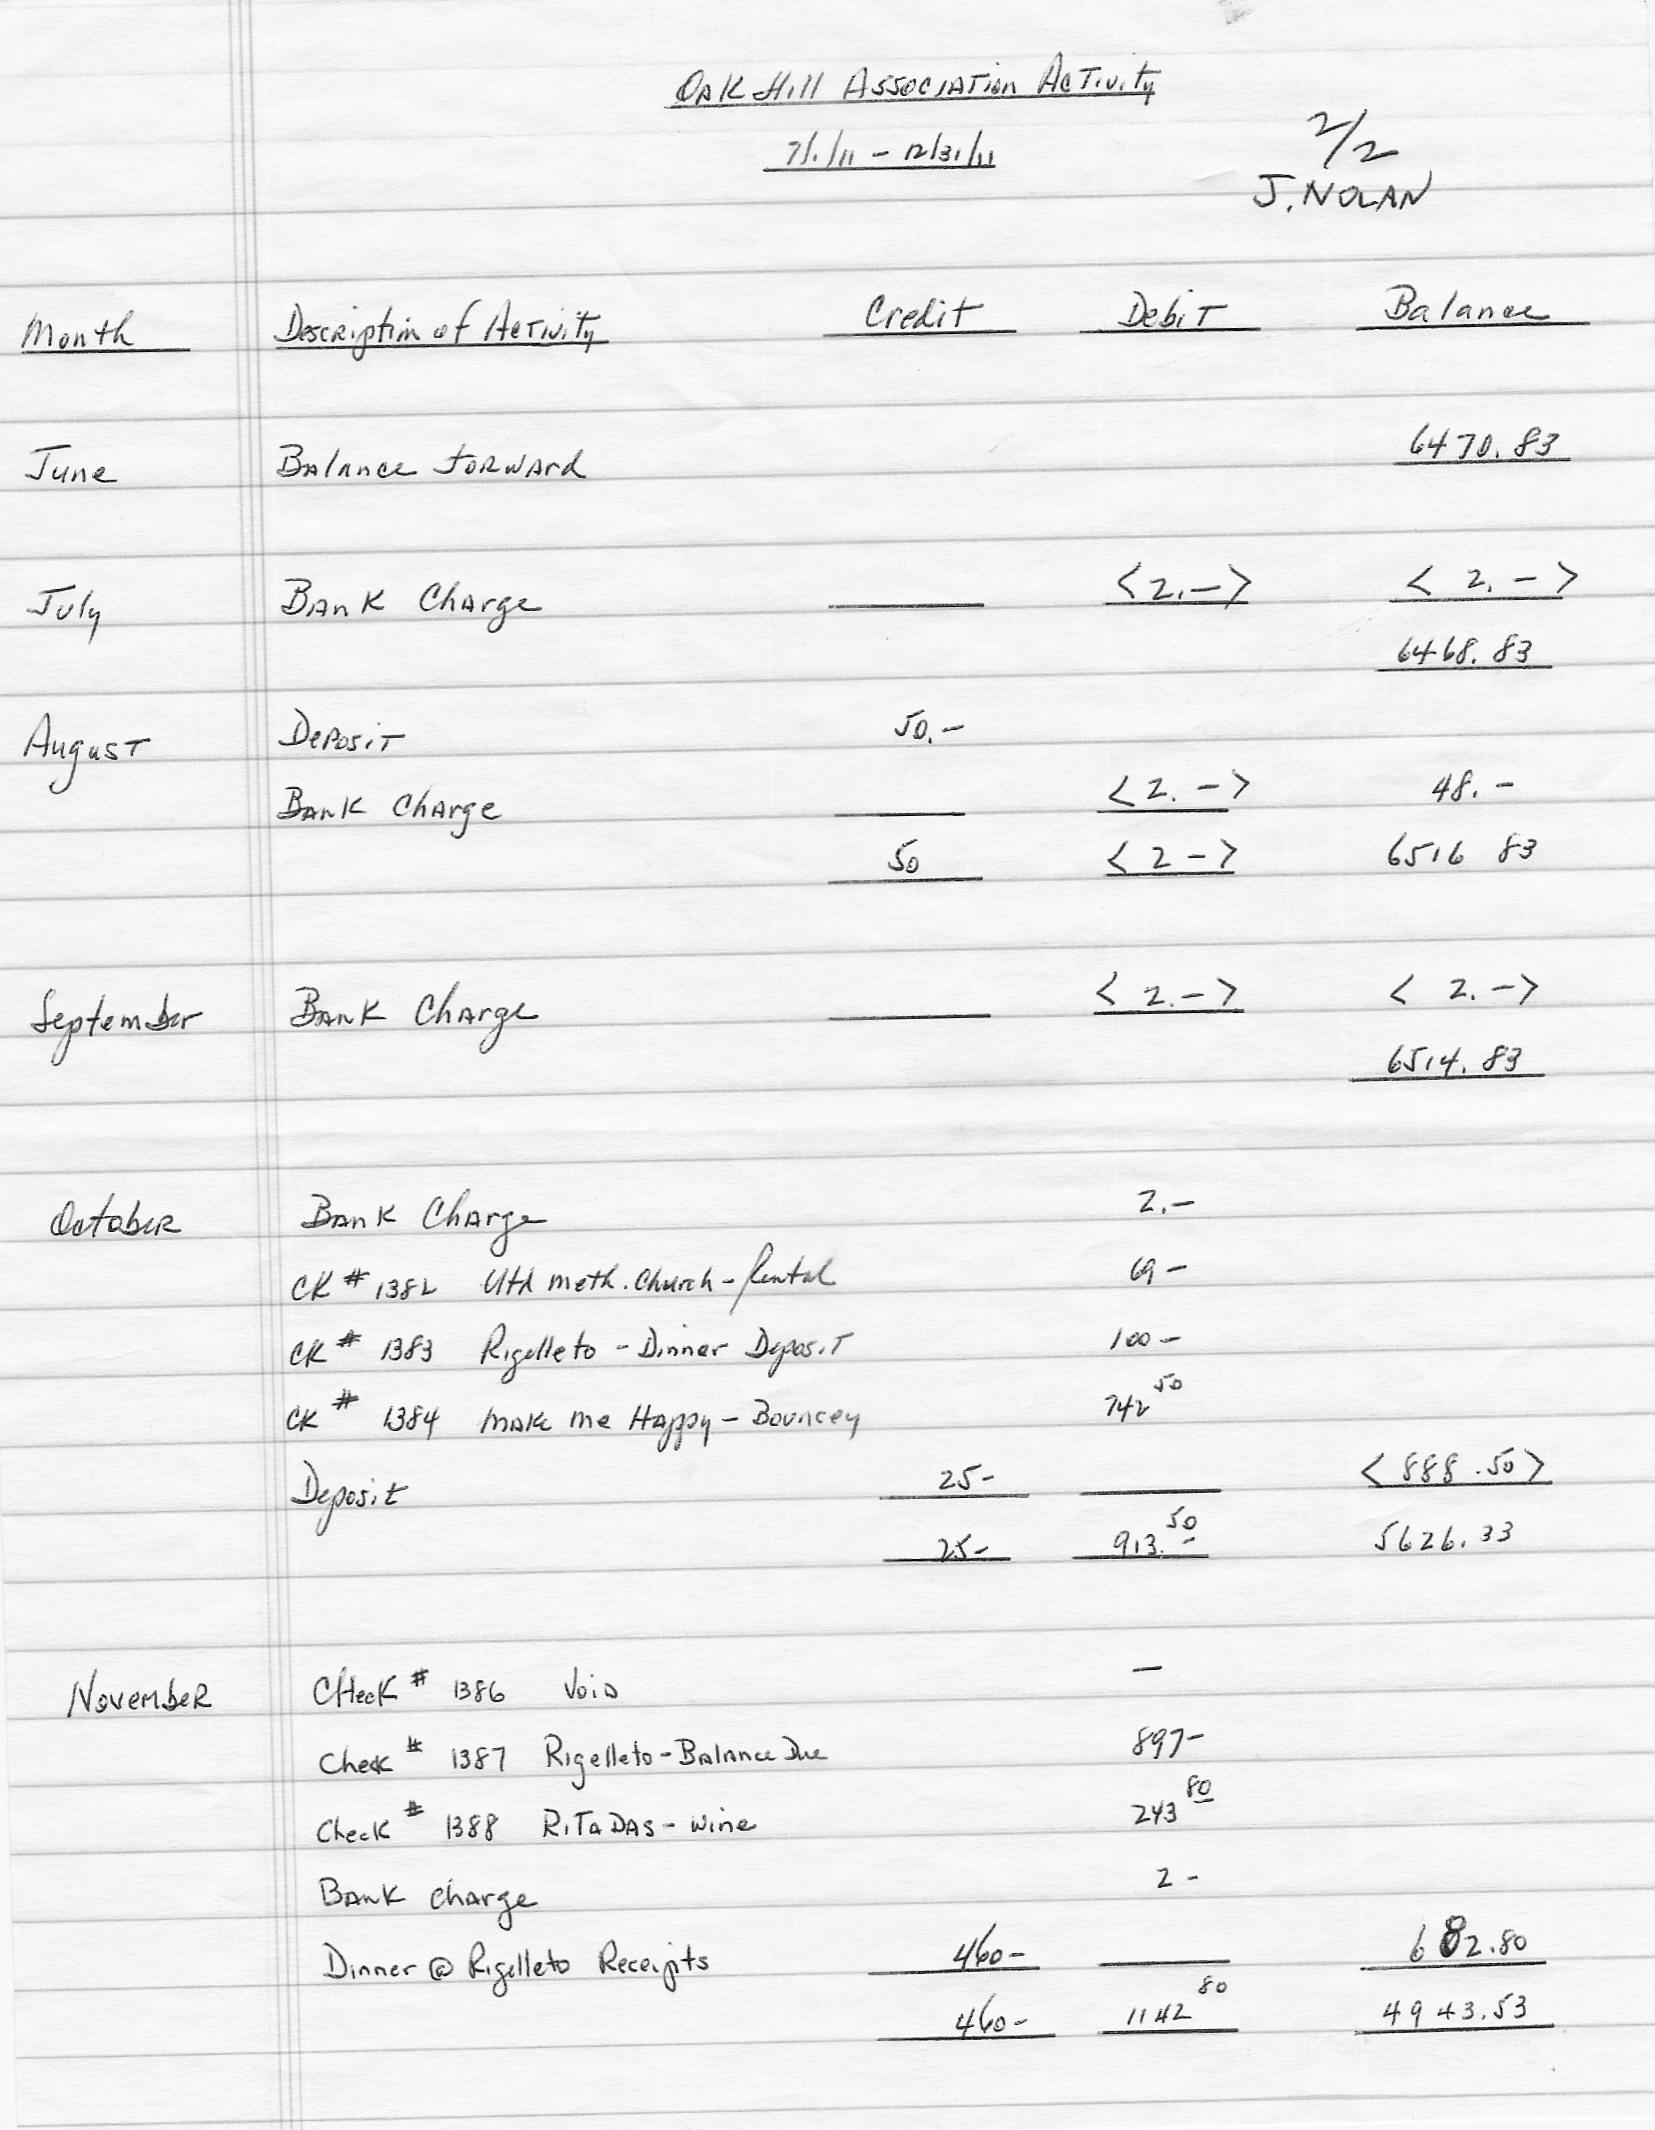 Oak Hill Association Activity
7/1/11 - 12/31/11
2/2
J. NOLAN
Month Description of Activity Credit Debit Balance
June Balance Forward 6470.83
July Bank Charge <2.-> <2.->
6468.83
August Deposit 50.-
Bank Charge <2.-> 48.-
50 <2-> 6516 83
September Bank Charge <2.-> <2.->
6514.83
October Bank Charge 2.-
CK # 1382 Utd Meth. Church - Rental 69-
CK # 1383 Rigelleto - Dinner Deposit 100-
CK # 1384 Make Me Happy - Bouncey 742 50
Deposit 25- <888.50>
25- 913. 50 5626.33
November Check # 1386 Void -
Check # 1387 Rigelleto - Balance Due 897-
Check # 1388 Rita DAS - Wine 243 80
Bank Charge 2-
Dinner @ Rigelleto Receipts 460- 682.80
460- 1142 80 4943.53